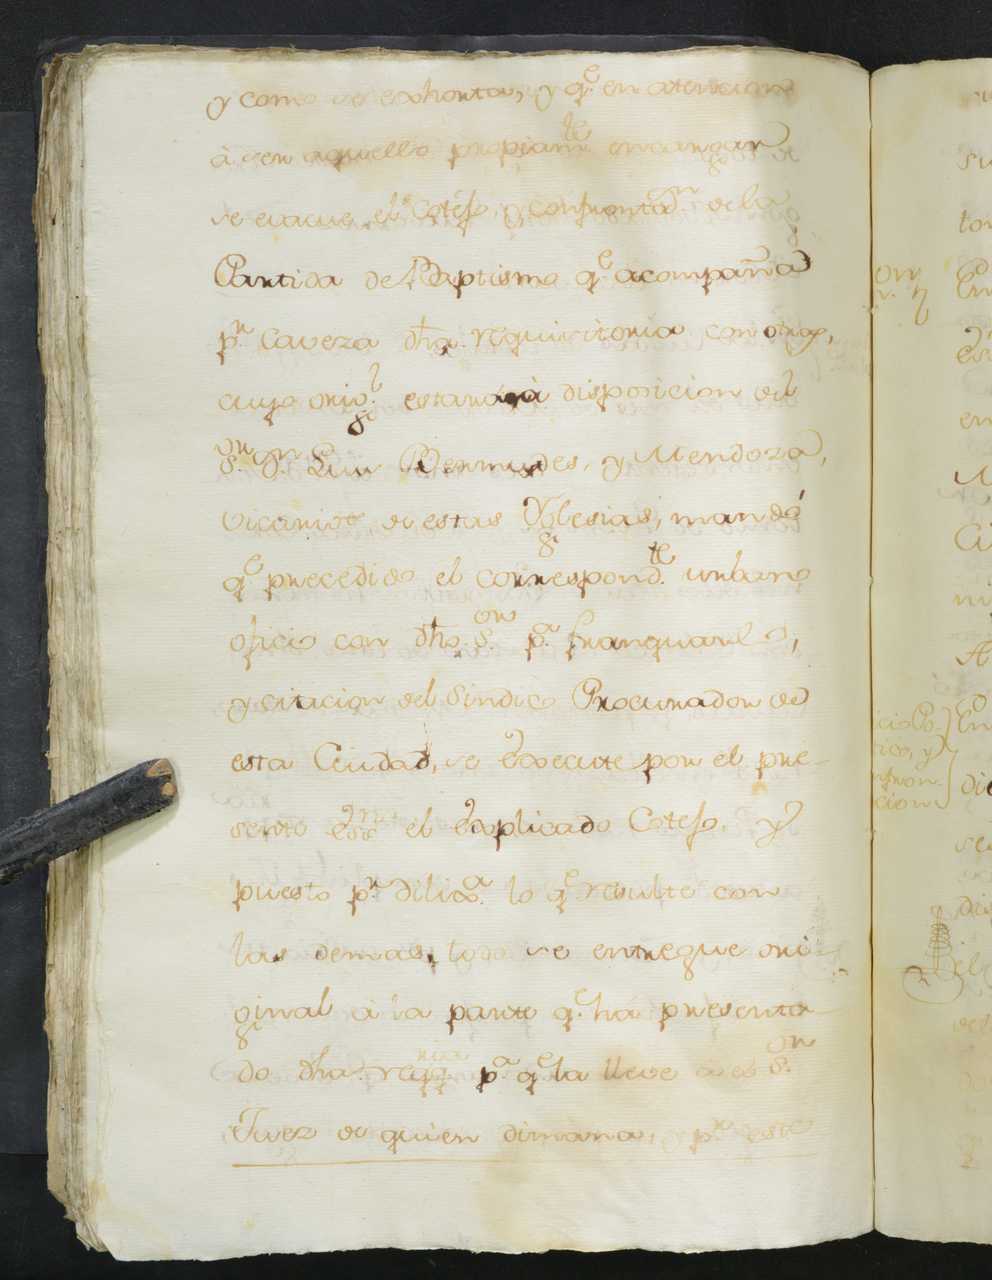 y como se exhorta, y q.e en atencion
à ser aquello propiam.te encargar
se evacue el Cotejo, y confronta.on de la
Partida de Baptismo q.e acompaña
p.r caveza dha. requisitoria con otra,
cuyo orig.l estarà à disposicion del
S.or D.n Luis Bermudes, y Mendoza,
Vicario de estas Yglesias, mandó
q.e precedido el correspond.te urbano
oficio con dho. S.or p.a franquearlo,
y citacion del Sindico Procurador de
esta Ciudad, se Execute por el pre-
sente Ess.no el Explicado Cotejo. Y
puesto p.r dilig.a lo q.e resulte con
las demas, todo se entregue ori-
ginal à la parte q.e ha presenta-
do dha. reqq.ria p.a q.e la lleve à el S.or
Juez de quien dimana, p.r este